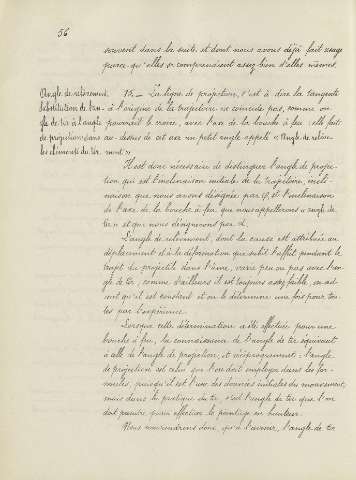 56
souvent dans la suite et dont nous avons déjà fait usage
parce qu'elles se comprenaient assez bien d'elles mêmes.
Angle de relèvement.
Substitution de l'an-
gle de tir à l'angle
de projection dans
les éléments du tir.
15.— La ligne de projection, c'est à dire la tangente
à l'origine de la trajectoire ne coïncide pas, comme on
pourrait le croire, avec l'axe de la bouche à feu; elle fait
au-dessus de cet axe un petit angle appelé « Angle de relève-
ment »
Il est donc nécessaire de distinguer l'angle de projec-
tion, qui est l'inclinaison initiale de la trajectoire, incli-
naison que nous avons désignée par φ, et l'inclinaison
de l'axe de la bouche à feu que nous appellerons « angle de
tir » et que nous désignerons par α.
L'angle de relèvement, dont la cause est attribuée au
déplacement et à la déformation que subit l'affût pendant le
trajet du projectile dans l'âme, varie peu ou pas avec l'an-
gle de tir; comme d'ailleurs il est toujours assez faible, on ad-
met qu'il est constant et on le détermine une fois pour tou-
tes par l'expérience.
Lorsque cette détermination a été effectuée pour une
bouche à feu, la connaissance de l'angle de tir équivaut
à celle de l'angle de projection, et réciproquement: l'angle
de projection est celui que l'on doit employer dans les for-
mules, puisqu'il est l'une des données initiales du mouvement,
mais dans la pratique du tir, c'est l'angle de tir que l'on
doit prendre pour effectuer le pointage en hauteur.
Nous conviendrons donc, qu'à l'avenir, l'angle de tir